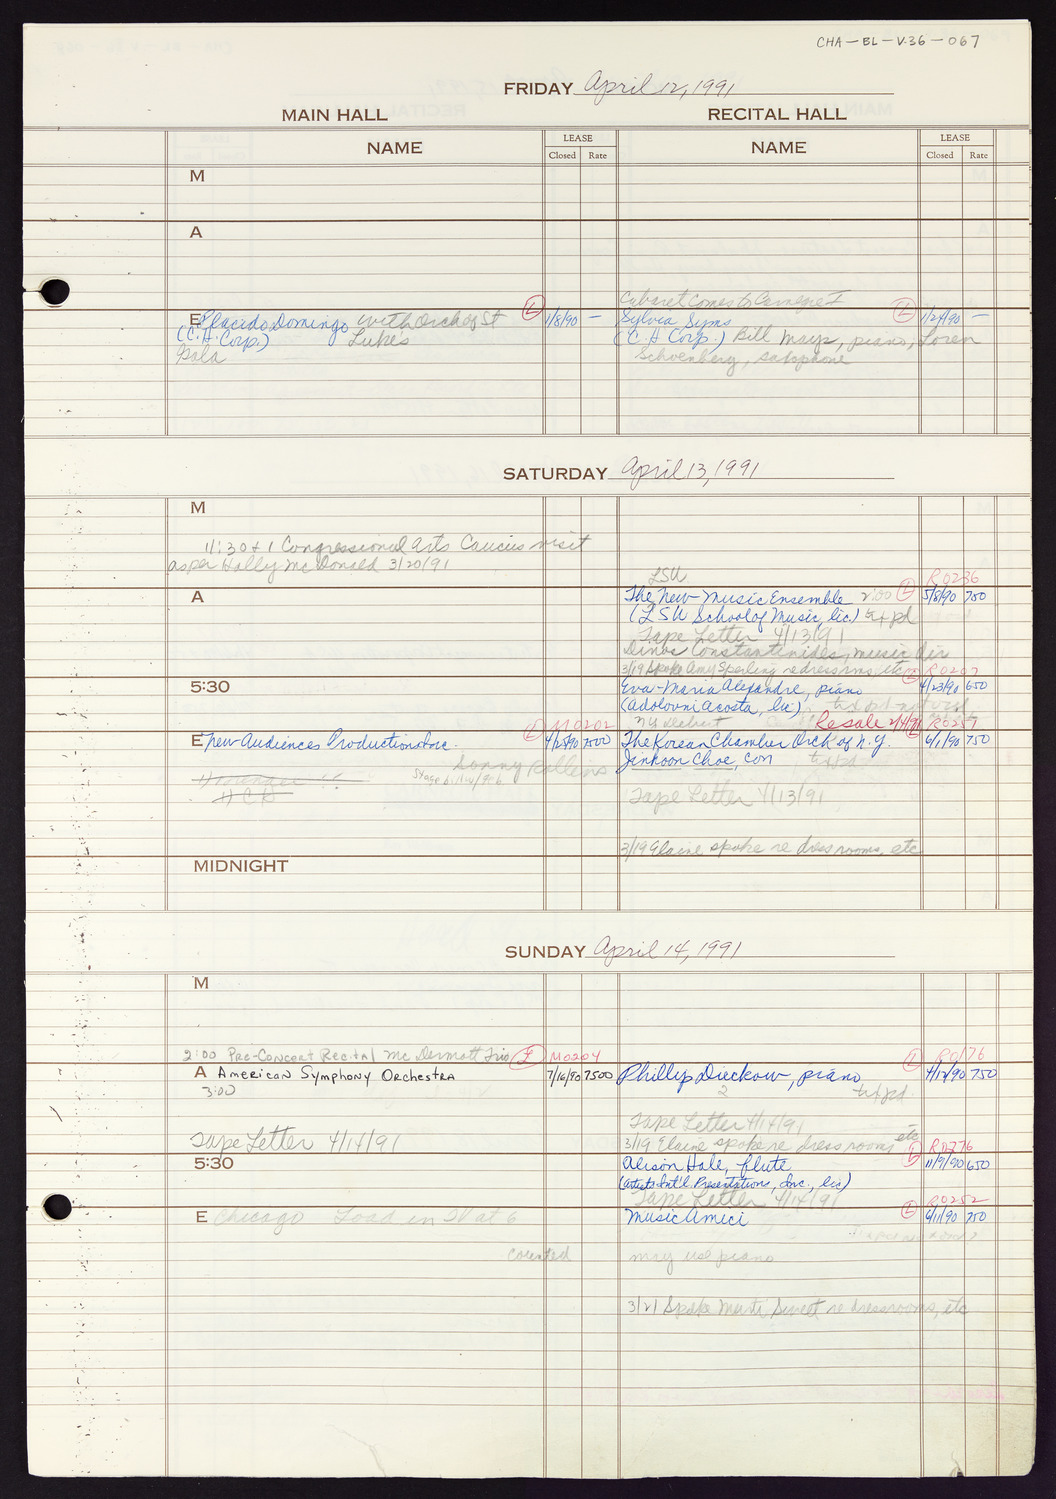 CHA-BL-V.36-067
FRIDAY April 12, 1991
MAIN HALL
RECITAL HALL
NAME
LEASE
Closed Rate
NAME
LEASE
Closed Rate
M
A
Cabaret Comes to Carnegie I
E Placido Domingo with Orch of St L 1/8/90 —
(C.H. Corp.) Lukes
Gala
Sylvia Syms L 1/24/90 —
(C.H. Corp.) Bill Mays, piano, Loren
Schoenberg, saxophone
SATURDAY April 13, 1991
M
11:30 + 1 Congressional Arts Caucus visit
as per Holly McDonald 3/20/91
LSU R0236
A
The New Music Ensemble 2:00 L 5/8/90 750
(LSU School of Music, lic.)
Tape Letter 4/13/91
Dinos Constantinides, music dir
3/19 Spoke Amy Sperling re dressrms etc R0207
5:30
Eva-Maria Alexandre, piano 4/23/90 650
(Adolovni Acosta, lic)
NY Debut Resale R0257
L M0202
E New Audiences Productions Inc. 7500
The Korean Chamber Orch of N.Y. 6/1/90 750
Jinkoon Choe, con
Tape Letter 4/13/91
3/19 Elaine spoke re dress rooms, etc
MIDNIGHT
SUNDAY April 14, 1991
M
2:00 Pre-Concert Recital McDermott Trio L M0204
L R0176
A American Symphony Orchestra 7/16/90 7500
3:00
Phillip Dieckow, piano 4/12/90 750
2
Tape Letter 4/14/91
Tape Letter 4/14/91
3/19 Elaine spoke re dress rooms etc
R0276
5:30
Alison Hale, flute L 11/9/90 650
(Artists Int'l. Presentations, Inc., lic)
Tape Letter 4/14/91
L R0252
E Chicago Load in IV at 6
Music Amici 6/11/90 750
counted
may use piano
3/21 Spoke Marti Sweet re dressrooms, etc